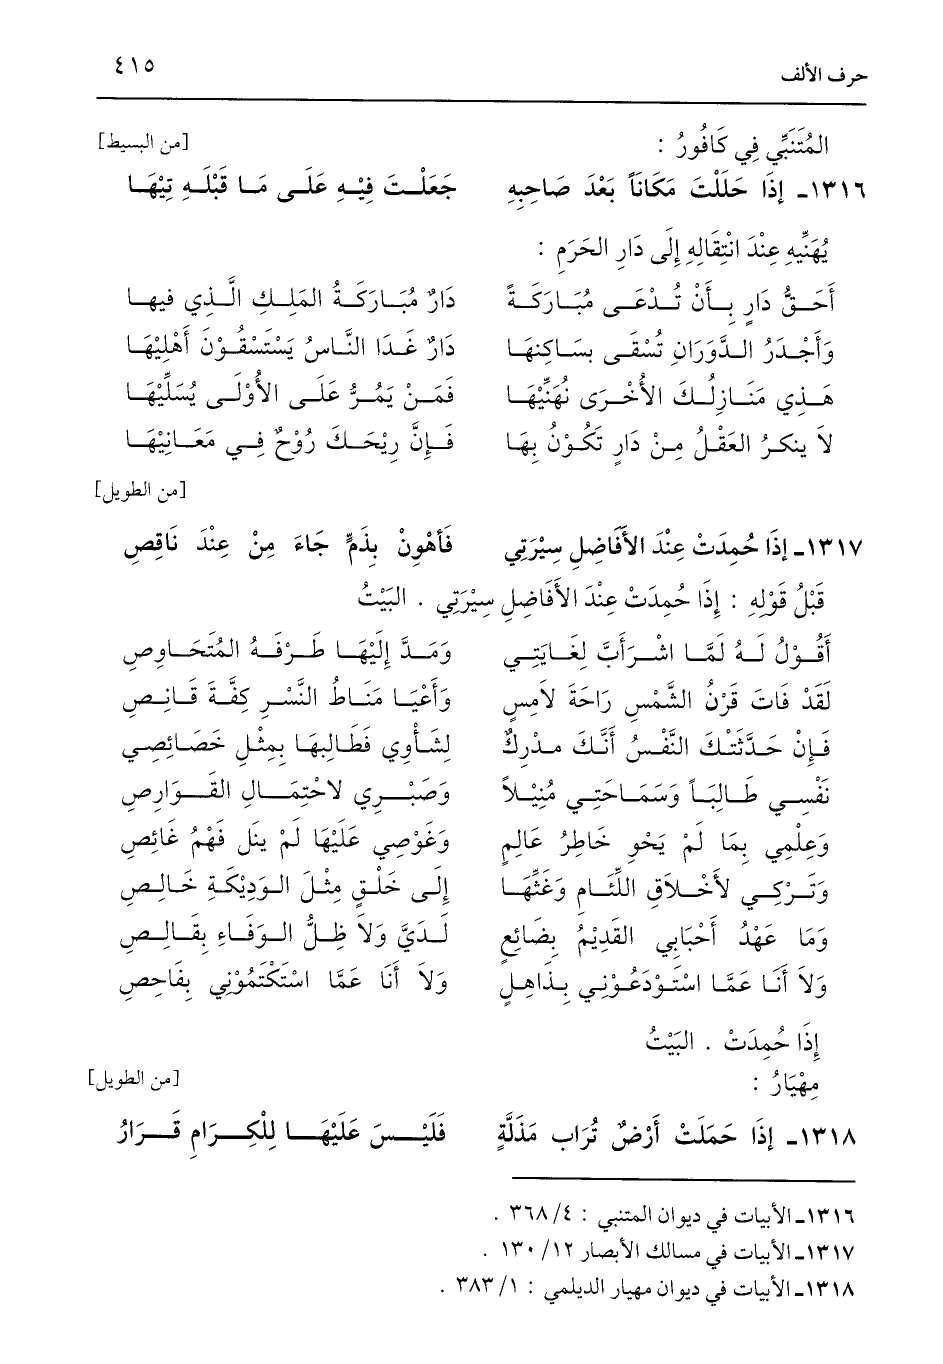 حرف الألف ٤١٥
المُتَنَبِّي فِي كَافُورُ : [من البسيط]
١٣١٦ـ إِذَا حَلَلْتَ مَكَانَاً بَعْدَ صَاحِبِهِ جَعَلْتَ فِيْهِ عَلَى مَا قَبْلَهِ تِيْهَا
يُهَنِّيهِ عِنْدَ انْتِقَالِهِ إِلَى دَارِ الحَرَمِ :
أَحَقُّ دَارٍ بِأَنْ تُدْعَى مُبَارَكَةً دَارٌ مُبَارَكَةُ المَلِكِ الَّذِي فيها
وَأَجْدَرُ الدَّوَرَانِ تُسْقَى بِسَاكِنِهَا دَارٌ غَدَا النَّاسُ يَسْتَسْقُوْنَ أَهْلِيْهَا
هَذِي مَنَازِلُكَ الأُخْرَى نُهَنِّيْهَا فَمَنْ يَمُرُّ عَلَى الأُوْلَى يُسَلِّيْهَا
لاَ ينكرُ العَقْلُ مِنْ دَارٍ تَكُوْنُ بِهَا فَإِنَّ رِيْحَكَ رُوْحٌ فِي مَغَانِيْهَا
[من الطويل]
١٣١٧ـ إِذَا حُمِدَتْ عِنْدَ الأَفَاضِلِ سِيْرَتِي فَأَهْونْ بِذَمٍّ جَاءَ مِنْ عِنْدَ نَاقِصِ
قَبْلُ قَوْلِهِ : إِذَا حُمِدَتْ عِنْدَ الأَفَاضِلِ سِيْرَتِي . البَيْتُ
أَقُوْلُ لَهُ لَمَّا اشْرَأَبَّ لِغَايَتِي وَمَدَّ إِلَيْهَا طَرْفَهُ المُتَخَاوِصِ
لَقَدْ فَاتَ قَرْنُ الشَّمْسِ رَاحَةَ لاَمِسٍ وَأَعْيَا مَنَاطُ النَّسْرِ كِفَّةَ قَانِصِ
فَإِنْ حَدَّثَتْكَ النَّفْسُ أَنَّكَ مدْرِكٌ لِشَأْوِي فَطَالِبْهَا بِمِثْلِ خَصَائِصِي
نَفْسِي طَالِبَاً وَسَمَاحَتِي مُنِيْلاً وَصَبْرِي لاحْتِمَالِ القَوَارِصِ
وَعِلْمِي بِمَا لَمْ يَحْوِ خَاطِرُ عَالِمٍ وَغَوْصِي عَلَيْهَا لَمْ يَنل فَهْمُ غَائِصِ
وَتَرْكِي لأَخْلاَقِ اللِّئَامِ وَغَثِّهَا إِلَى خَلْقٍ مِثْلَ الوَدِيْكَةِ خَالِصِ
وَمَا عَهْدُ أَحْبَابِي القَدِيْمُ بِضَائِعٍ لَدَيَّ وَلاَ ظِلُّ الوَفَاءِ بِقَالِصِ
وَلاَ أَنَا عَمَّا اسْتَوْدَعُوْنِي بِذَاهِلٍ وَلاَ أَنَا عَمَّا اسْتَكْتَمُوْنِي بِفَاحِصِ
إِذَا حُمِدَتْ . البَيْتُ
مِهْيَارُ : [من الطويل]
١٣١٨ـ إِذَا حَمَلَتْ أَرْضٌ تُرَابَ مَذَلَّةٍ فَلَيْسَ عَلَيْهَا لِلْكِرَامِ قَرَارُ
١٣١٦ـ الأبيات في ديوان المتنبي : ٤/ ٣٦٨ .
١٣١٧ـ الأبيات في مسالك الأبصار ١٢/ ١٣٠ .
١٣١٨ـ الأبيات في ديوان مهيار الديلمي : ١/ ٣٨٣ .